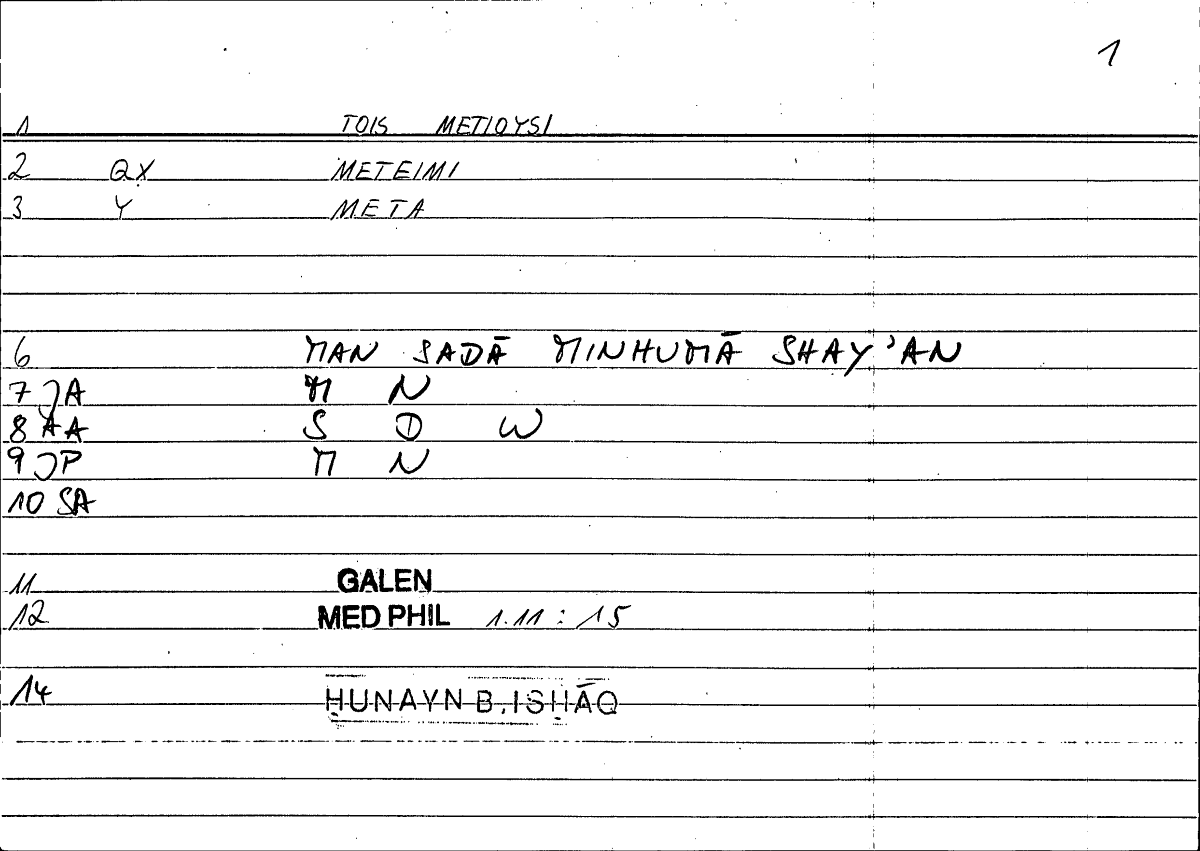 1
1 TOIS METIOYSI
2 QX METEIMI
3 Y META
6 MAN SADĀ MINHUMĀ SHAY'AN
7 JA M N
8 AA S D W
9 JP M N
10 SA
11 GALEN
12 MED PHIL 1.11 : 15
14 ḤUNAYN B. ISḤĀQ